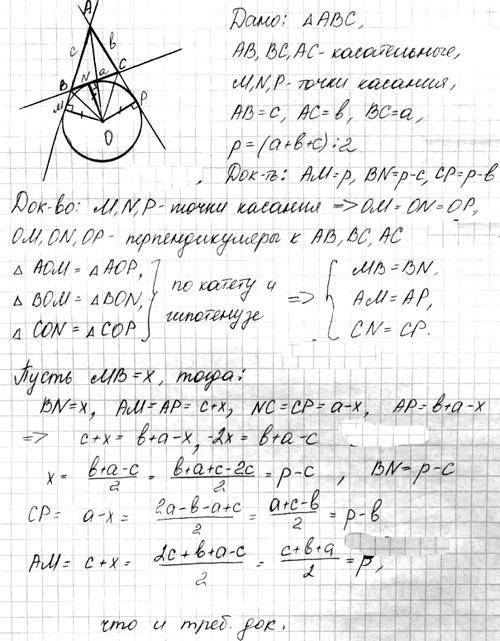 A
c
b
B N a C
M
P
O
Дано: △ABC,
AB, BC, AC - касательные,
M, N, P - точки касания,
AB = c, AC = b, BC = a,
p = (a+b+c):2
Док-ть: AM = p, BN = p-c, CP = p-b
Док-во: M, N, P - точки касания => OM = ON = OP,
OM, ON, OP - перпендикуляры к AB, BC, AC
△ AOM = △ AOP,
△ BOM = △ BON,
△ CON = △ COP
} по катету и гипотенузе => {
MB = BN,
AM = AP,
CN = CP.
Пусть MB = x, тогда:
BN = x, AM = AP = c+x, NC = CP = a-x, AP = b+a-x
=> c+x = b+a-x, -2x = b+a-c
x = (b+a-c)/2 = (b+a+c-2c)/2 = p-c , BN = p-c
CP = a-x = (2a-b-a+c)/2 = (a+c-b)/2 = p-b
AM = c+x = (2c+b+a-c)/2 = (c+b+a)/2 = p,
что и треб. док.